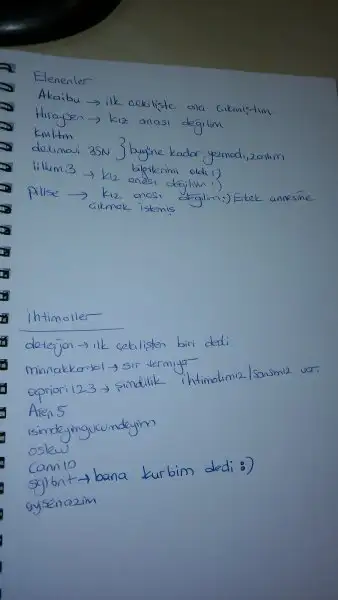 Elenenler
Akaibu → ilk çekilişte ona çıkmıştım
Hiraysen → kız anası değilim
kmltm
delimavi 35N } bugüne kadar yazmadı, zanlım
lilium3 → kız bilgilerimi aldı :)
anası değilim :)
pillse → kız anası değilim :) Erkek annesine
çıkmak istemiş
İhtimaller
deterjan → ilk çekilişten biri dedi
minnakkartel → sır vermiyor
apriori123 → şimdilik ihtimalimiz/şansımız var.
Aren5
isimdeğingucumdeyim
oskw
Cann10
sglbnt → bana kurbim dedi :)
aysenazim